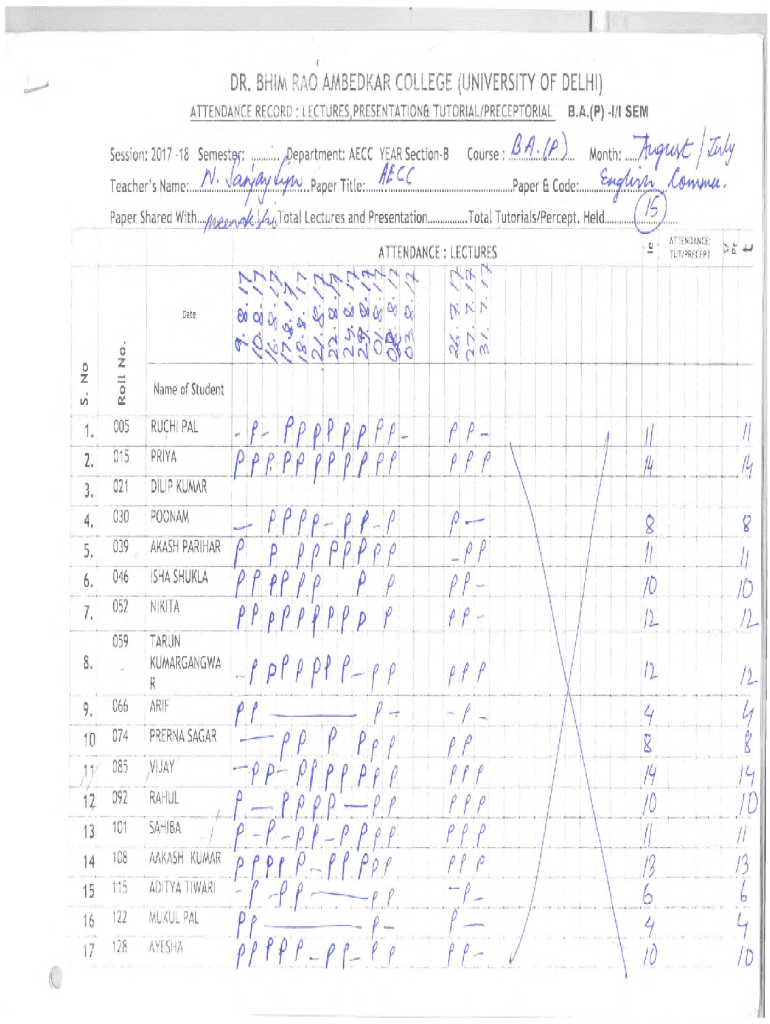 DR. BHIM RAO AMBEDKAR COLLEGE (UNIVERSITY OF DELHI)
ATTENDANCE RECORD : LECTURES,PRESENTATION& TUTORIAL/PRECEPTORIAL B.A.(P) -I/I SEM
Session: 2017 -18 Semester: .......... Department: AECC YEAR Section-B Course : B.A.(P) Month: August / July
Teacher's Name: N. Sanjay Paper Title: AECC Paper & Code: English Commu.
Paper Shared With Meenakshi Total Lectures and Presentation............... Total Tutorials/Percept. Held (15)
ATTENDANCE : LECTURES ATTENDANCE: TUT/PRECEPT
Date 9.8.17 10.8.17 16.8.17 17.8.17 18.8.17 21.8.17 22.8.17 24.8.17 29.8.17 01.8.17 02.8.17 03.8.17 26.7.17 27.7.17 31.7.17
S. No Roll No. Name of Student
1. 005 RUCHI PAL - P - P P P P P P P P - P P - 11 11
2. 015 PRIYA P P P P P P P P P P P P P P 14 14
3. 021 DILIP KUMAR
4. 030 POONAM - P P P P - P P - P P - 8 8
5. 039 AKASH PARIHAR P P P P P P P P P - P P 11 11
6. 046 ISHA SHUKLA P P P P P P P P P P - 10 10
7. 052 NIKITA P P P P P P P P P P P P - 12 12
8. 059 TARUN KUMARGANGWA R - P P P P P P P - P P P P P 12 12
9. 066 ARIF P P - P - - P - 4 4
10 074 PRERNA SAGAR - P P P P P P P P 8 8
11 085 VIJAY - P P - P P P P P P P P P P P 14 14
12 092 RAHUL P - P P P P - P P P P P 10 10
13 101 SAHIBA P - P - P P - P P P P P P P 11 11
14 108 AAKASH KUMAR P P P P P - P P P P P P P P 13 13
15 115 ADITYA TIWARI - P - P P - P P - P - 6 6
16 122 MUKUL PAL P P - P - P - 4 4
17 128 AYESHA P P P P P - P P - P P P P - 10 10